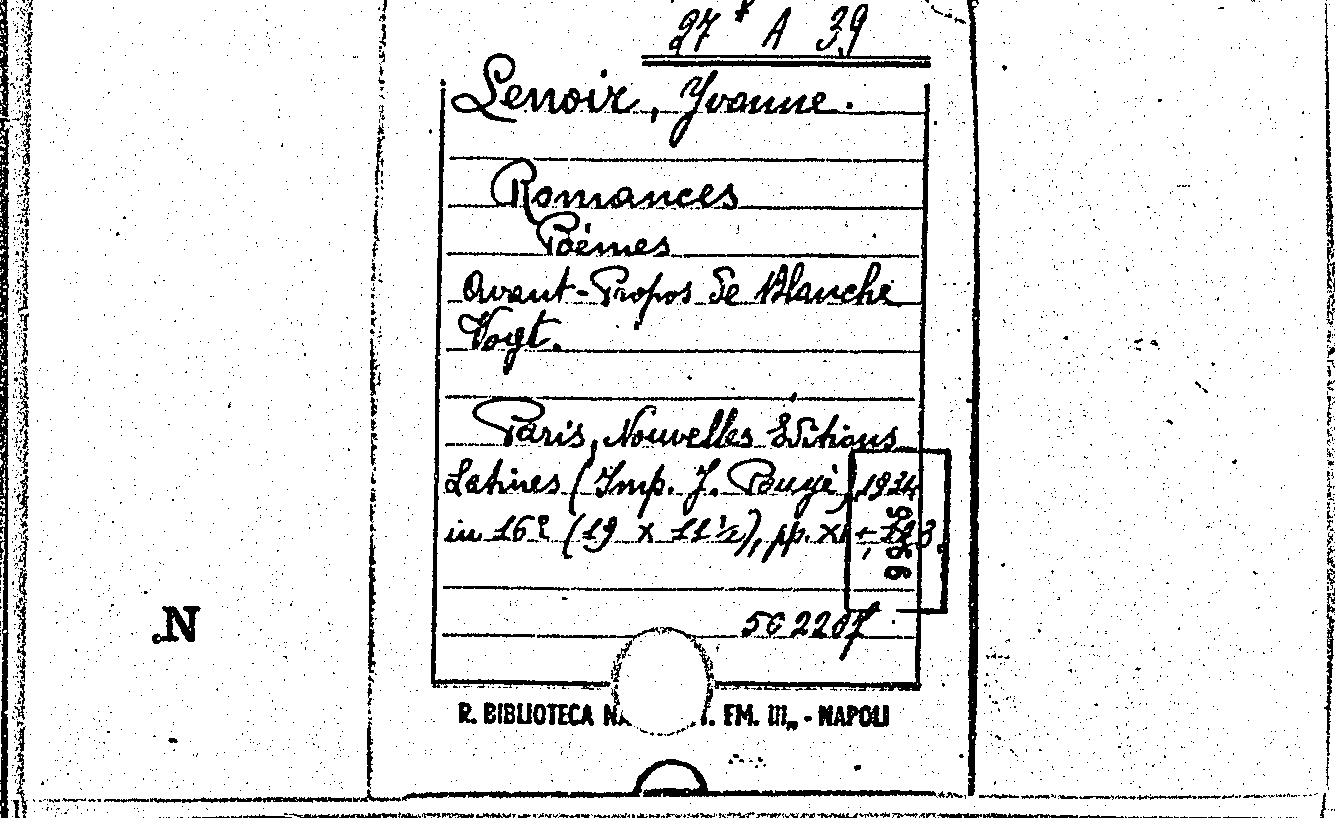 27* A 39
Lenoir, Yvonne.
Romances
Poèmes
Avant-Propos de Blanche
Vogt.
Paris, Nouvelles Editions
Latines (Imp. J. Pougé), 1934
in 16º (19 x 11½), pp. XI +
562207
N.
R. BIBLIOTECA EM. III„ - NAPOLI